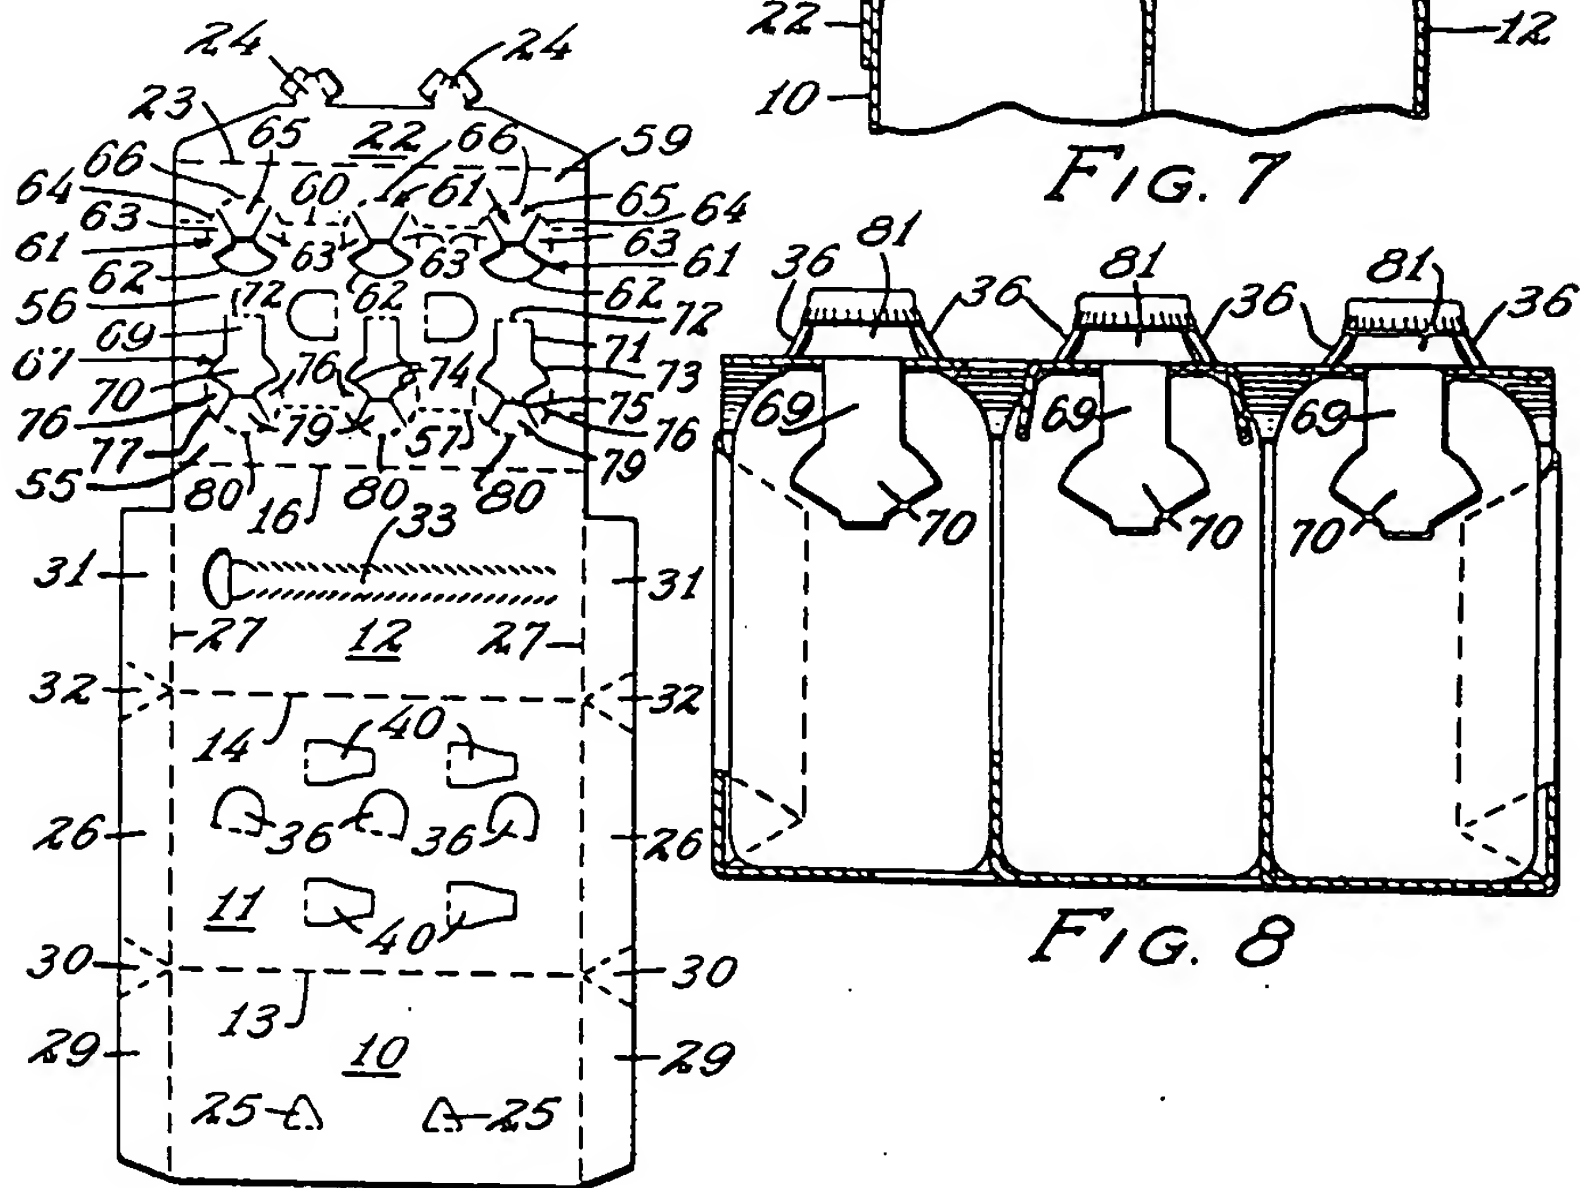 24 24
23 65 22 66 59
66 60 61 65
64 64
63 63 63 63
61 61
62 62 62
56 72 72
69 71
67 76 74 73
70 75
76 79 57 76
77 79
55 80 80 80
16 33
31 31
27 12 27
32 32
14 40
26 36 36 26
11 40
30 30
13
29 10 29
25 25
22 12
10
FIG. 7
81 81 81
36 36 36 36
69 69 69
70 70 70
FIG. 8